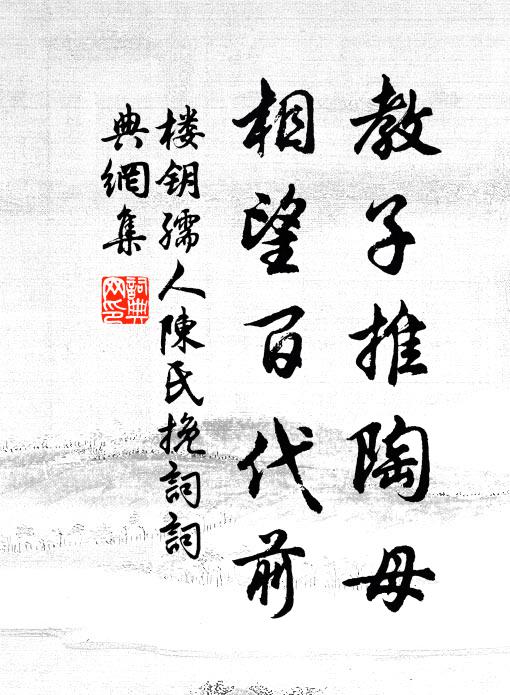 教子推陶母
相望百代前
楼钥孺人陳氏挽詞詞
典網集
詞典
网印